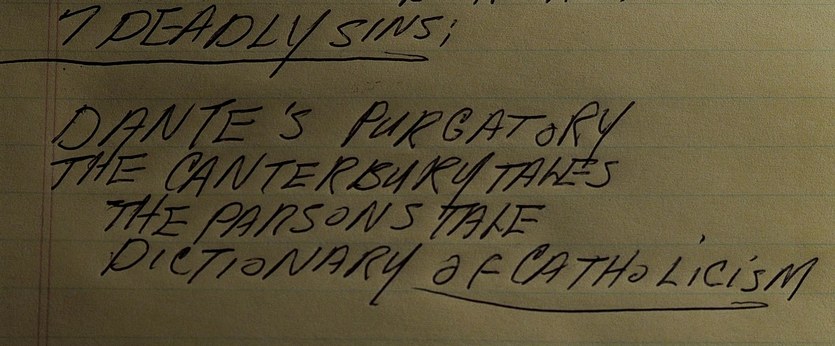 7 DEADLY SINS;
DANTE'S PURGATORY
THE CANTERBURY TALES
THE PARSONS TALE
DICTIONARY OF CATHOLICISM